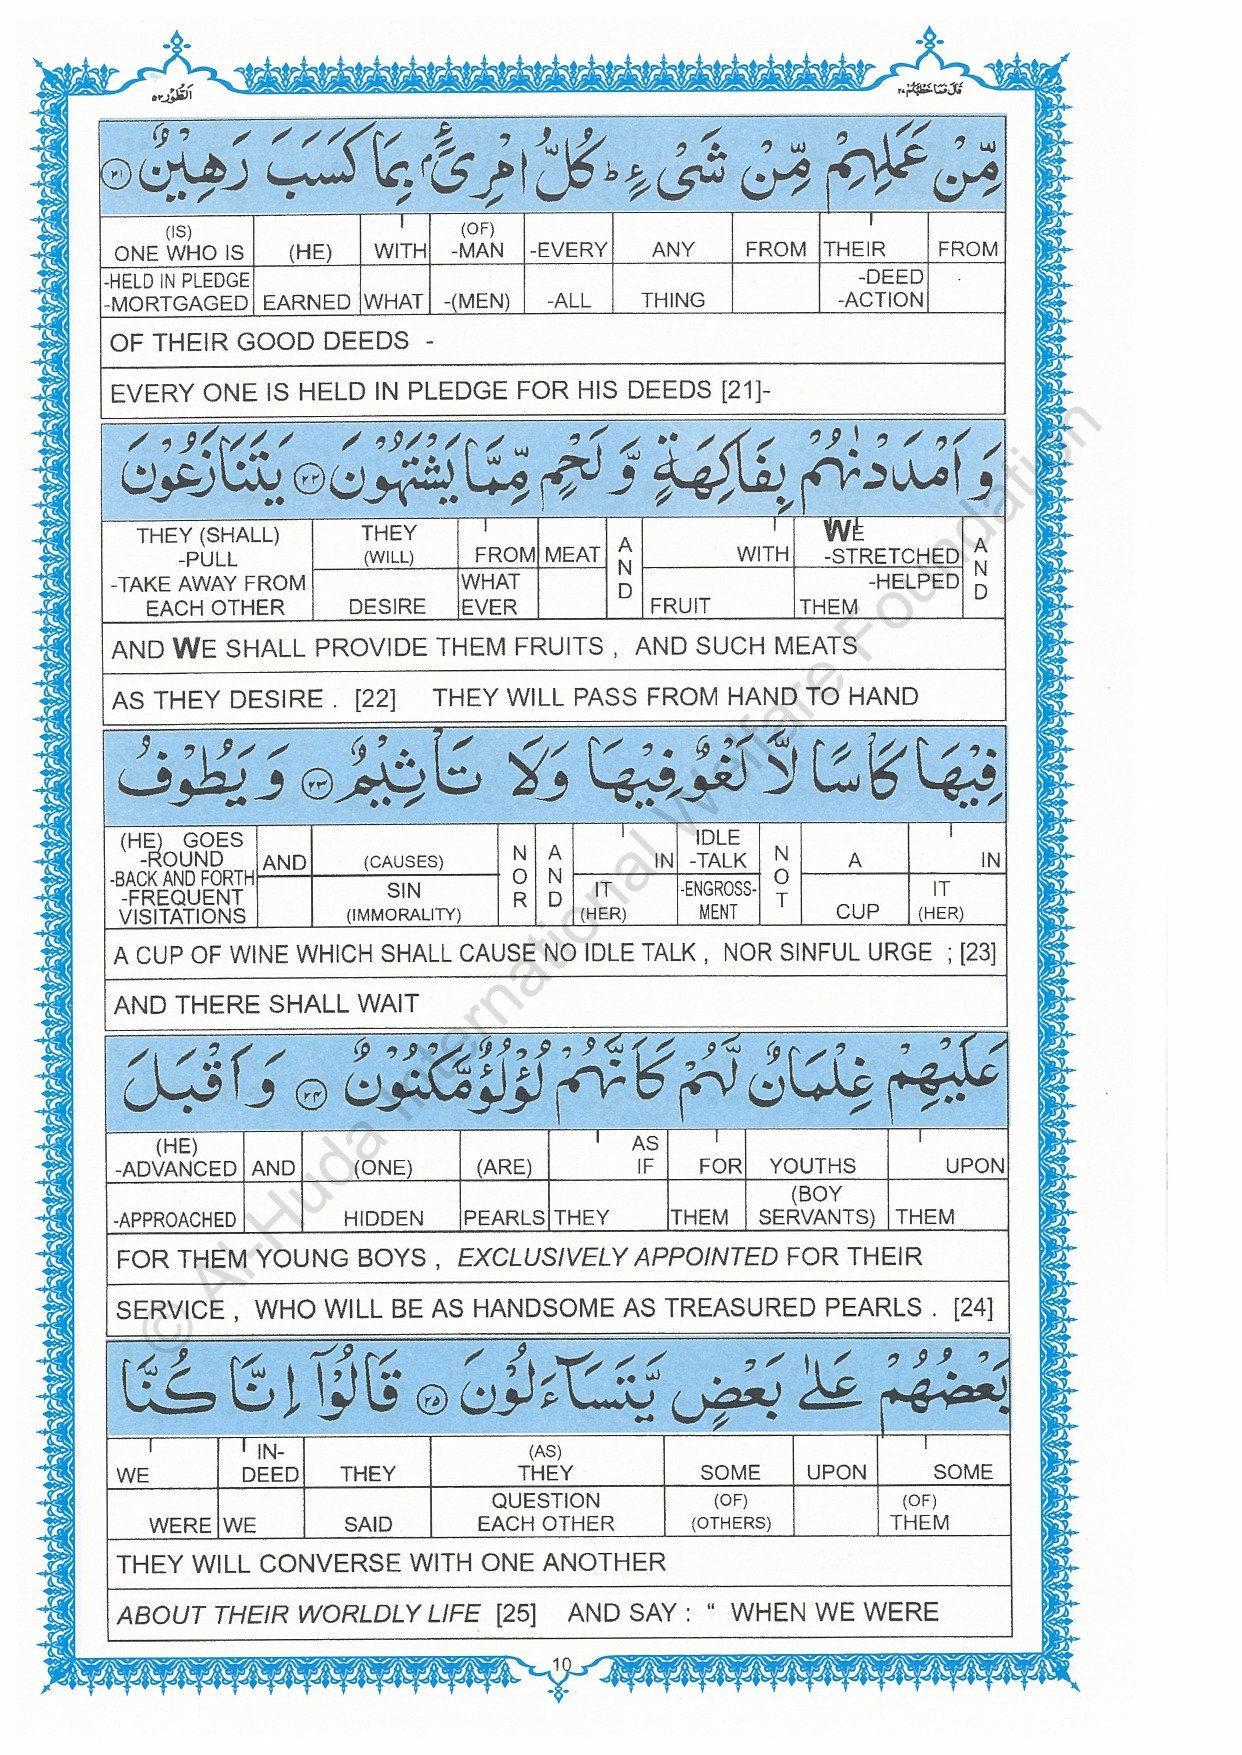 اَلطُّوْر ٥٢
قَالَ فَمَا خَطْبُكُمْ ٢٧
مِّنْ عَمَلِهِمْ مِّنْ شَیْءٍ ؕ كُلُّ امْرِئٍۭ بِمَا كَسَبَ رَهِیْنٌ ۝٢١
(IS) ONE WHO IS (HE) WITH (OF) -MAN -EVERY ANY FROM THEIR FROM
-HELD IN PLEDGE -MORTGAGED EARNED WHAT -(MEN) -ALL THING -DEED -ACTION
OF THEIR GOOD DEEDS -
EVERY ONE IS HELD IN PLEDGE FOR HIS DEEDS [21]-
وَ اَمْدَدْنٰهُمْ بِفَاكِهَةٍ وَّ لَحْمٍ مِّمَّا یَشْتَهُوْنَ ۝٢٢ یَتَنَازَعُوْنَ
THEY (SHALL) -PULL THEY (WILL) FROM MEAT AND WITH WE -STRETCHED AND
-TAKE AWAY FROM EACH OTHER DESIRE WHAT EVER FRUIT -HELPED THEM
AND WE SHALL PROVIDE THEM FRUITS , AND SUCH MEATS
AS THEY DESIRE . [22] THEY WILL PASS FROM HAND TO HAND
فِیْهَا كَاْسًا لَّا لَغْوٌ فِیْهَا وَلَا تَاْثِیْمٌ ۝٢٣ وَ یَطُوْفُ
(HE) GOES -ROUND AND (CAUSES) NOR AND IN IDLE -TALK NOT A IN
-BACK AND FORTH -FREQUENT VISITATIONS SIN (IMMORALITY) IT (HER) -ENGROSS-MENT CUP IT (HER)
A CUP OF WINE WHICH SHALL CAUSE NO IDLE TALK , NOR SINFUL URGE ; [23]
AND THERE SHALL WAIT
عَلَیْهِمْ غِلْمَانٌ لَّهُمْ كَاَنَّهُمْ لُؤْلُؤٌ مَّكْنُوْنٌ ۝٢٤ وَ اَقْبَلَ
(HE) -ADVANCED AND (ONE) (ARE) AS IF FOR YOUTHS UPON
-APPROACHED HIDDEN PEARLS THEY THEM (BOY SERVANTS) THEM
FOR THEM YOUNG BOYS , EXCLUSIVELY APPOINTED FOR THEIR
SERVICE , WHO WILL BE AS HANDSOME AS TREASURED PEARLS . [24]
بَعْضُهُمْ عَلٰی بَعْضٍ یَّتَسَآءَلُوْنَ ۝٢٥ قَالُوْۤا اِنَّا كُنَّا
WE IN-DEED THEY (AS) THEY SOME UPON SOME
WERE WE SAID QUESTION EACH OTHER (OF) (OTHERS) (OF) THEM
THEY WILL CONVERSE WITH ONE ANOTHER
ABOUT THEIR WORLDLY LIFE [25] AND SAY : “ WHEN WE WERE
10
© Al-Huda International Welfare Foundation